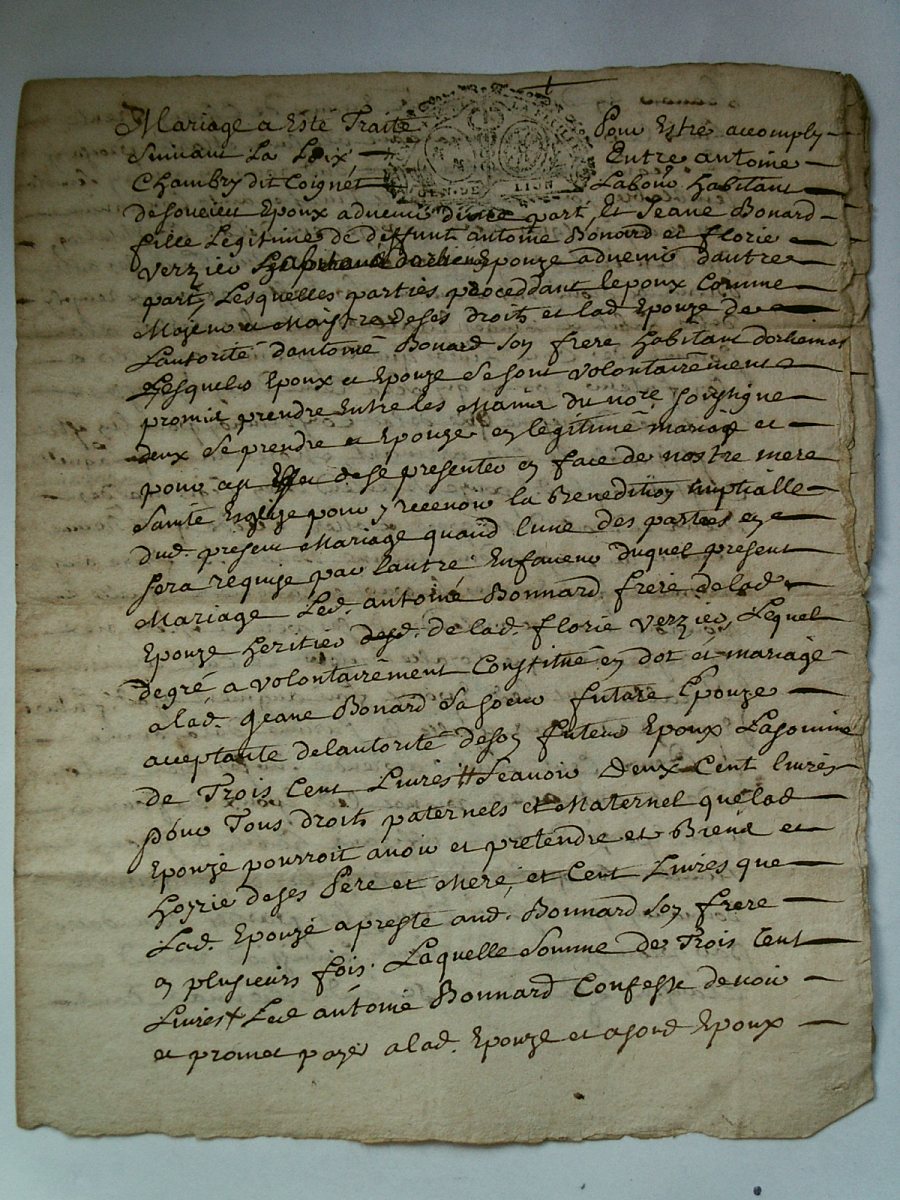 Mariage a Esté Traité Pour Estre accomply
Suivant La Loix Entre antoine
Chambry dit Coignet Labour habitant
GEN DE LION
desoucieu Epoux advenir dune part, Et Jeane Bonard
fille Legitime de deffunt antoine Bonard et florie
verzier Epouze advenir dautre
part, Lesquelles parties proceddant lepoux Comme
Majeur et Maistre deses droits et lad. Epouze de
Lautorité dantoine Bonard son frere habitant dorlienas
Lesquels Epoux et Epouze se sont volontairement
promis prendre Entre les Mains du nore. soussigne
deux se prendre et Epouzer en legitime mariage et
pour cet Effet de se presenter en face de nostre mere
Sainte Esglize pour y recevoir la Benediction nuptialle
dud. present Mariage quand lune des parties en
sera requise par lautre Enfaveur duquel present
Mariage Led. antoine Bonnard frere delad.
Epouze heritier de lad. florie verzier, Lequel
degré a volontairement Constitué en dot et mariage
alad. Jeane Bonard sa soeur future Epouze
acceptante delautorité deson futeur Epoux Lasomme
de Trois Cent Livres Sçavoir Deux Cent livres
pour Tous droits paternels et Maternel quelad
Epouze pourroit avoir et pretendre et Biens et
hoyrie deses Pere et Mere, et Cent Livres que
Lad. Epouze a presté aud. Bonnard son frere
en plusieurs fois. Laquelle Somme de Trois Cent
Livres Led antoine Bonnard Confesse devoir
et promet payer alad. Epouze et asond Epoux